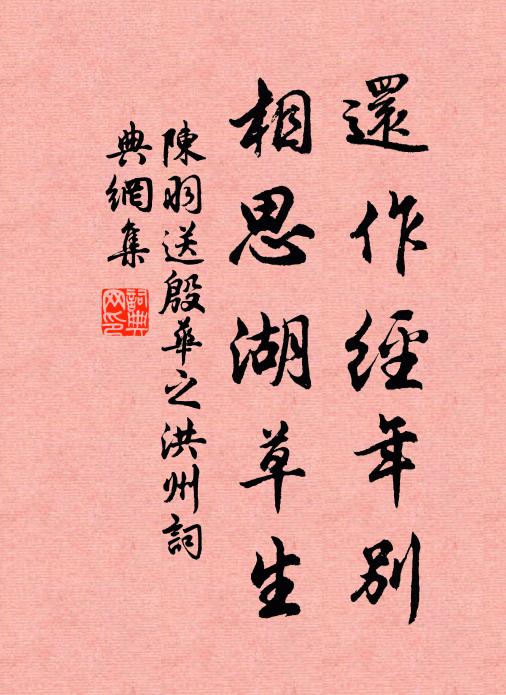 還作經年別
相思湖草生
陳羽送殷華之洪州詞
典網集
詞典網印